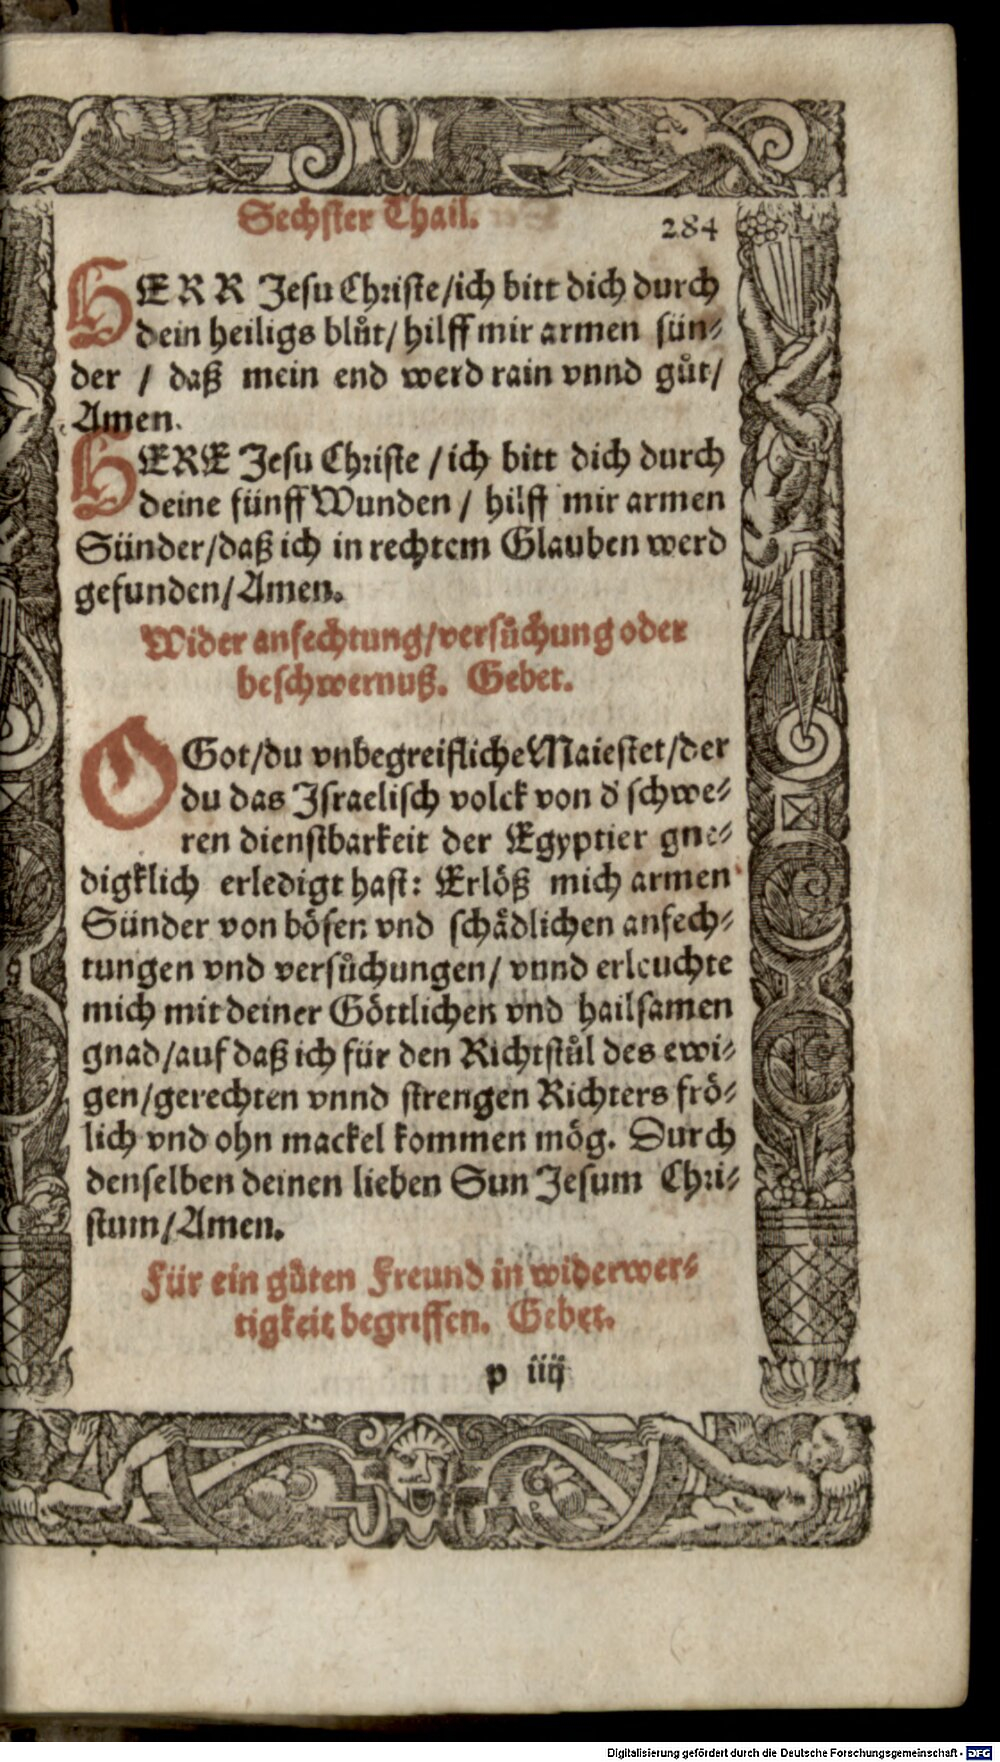 Sechster Thail. 284
HERR Jesu Christe/ich bitt dich durch
dein heiligs blůt/ hilff mir armen sün⸗
der / daß mein end werd rain vnnd gůt/
Amen.
HERE Jesu Christe /ich bitt dich durch
deine fünff Wunden / hilff mir armen
Sünder/daß ich in rechtem Glauben werd
gefunden/Amen.
Wider anfechtung/versůchung oder
beschwernuß. Gebet.
O Got/du vnbegreifliche Maiestet/der
du das Israelisch volck von d' schwe⸗
ren dienstbarkeit der Egyptier gne⸗
digklich erledigt hast: Erlöß mich armen
Sünder von bösen vnd schädlichen anfech⸗
tungen vnd versůchungen/ vnnd erleuchte
mich mit deiner Göttlichen vnd hailsamen
gnad/auf daß ich für den Richtstůl des ewi⸗
gen/gerechten vnnd strengen Richters frö⸗
lich vnd ohn mackel kommen mög. Durch
denselben deinen lieben Sun Jesum Chri⸗
stum/Amen.
Für ein gůten Freund in widerwer⸗
tigkeit begriffen. Gebet.
p iiij
Digitalisierung gefördert durch die Deutsche Forschungsgemeinschaft - DFG